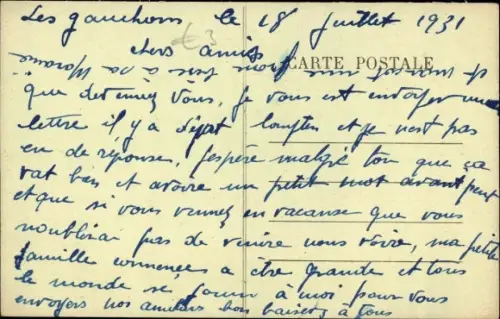 Les gauchons le 18 Juillet 1931
€3
chers amis
CARTE POSTALE
que devenez vous, Je vous est envoyer une
lettre il y a dejat lonpten et je nest pas
eu de réponse, J'espère malgré tou que ça
vat bien et avoire un petit mot avant peux
et que si vous venez en vacanse que vous
noublirai pas de venire nous voire, ma petite
famille commence a être grande et tous
le monde se joins à moi pour vous
envoyers nos amitiers bon baisers à tous